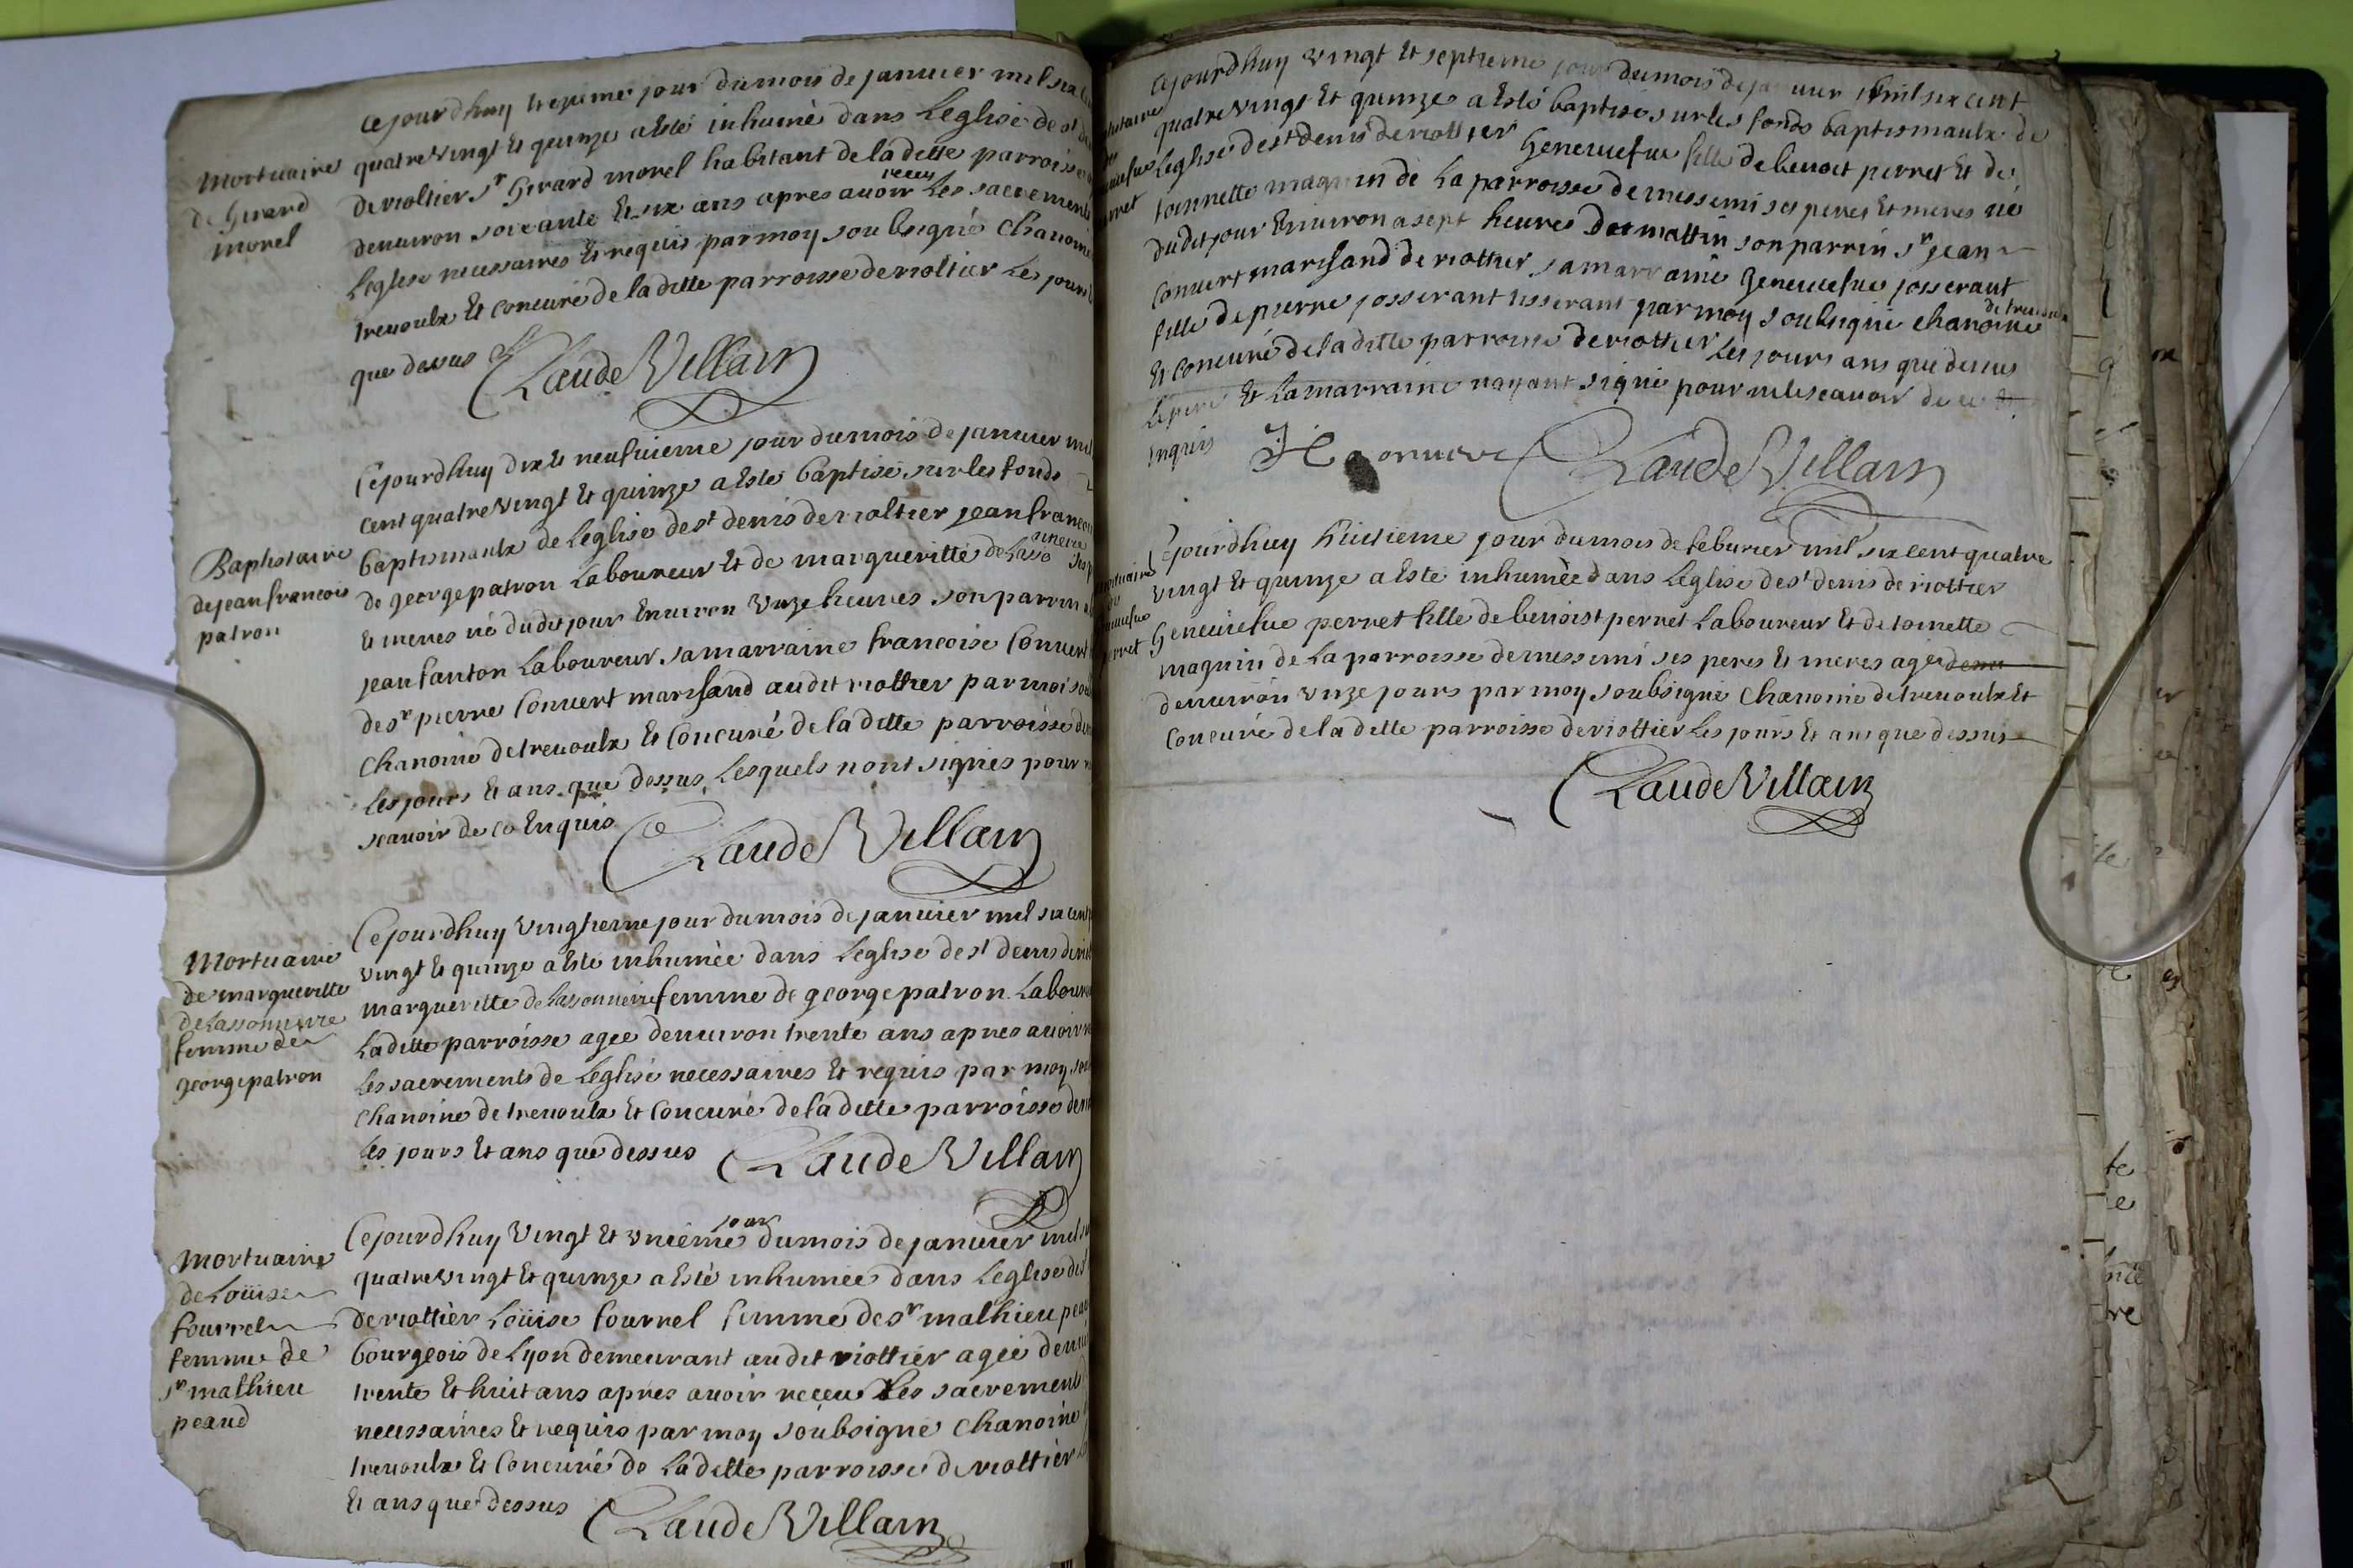 Mortuaire
de Girard
morel
Cejourdhuy trezieme jour dumois de januier mil six
quatreVingt Et quinze a Esté inhumé dans Leglise de st
deriottier sr Girard morel habitant de ladette parroisse
denuiron soixante Et six ans apres auoir receu Les sacrements
Leglise necessaires Et requis parmoy soubsigné Chanoine
treuoulx Et concuré de ladette parroisse deriottier Les jours
que dessus
Claude Villain
Baptistaire
dejeanfrancois
patron
Cejourdhuy dix Et neufuieme jour dumois de januier mil
cent quatreVingt Et quinze a Esté baptisé surles fonds
baptismaulx de Leglise dest denis deriottier jeanfrancois
de georgepatron Laboureur Et de margueritte delasso
Et meres né dudit jour Enuiron Vnze heures sonparrin
jeanfanton Laboureur samarraine francoise Conuert
desr pierre Conuert marchand audit riottier parmoi
Chanoine detreuoulx Et Concuré deladitte parroisse
Les jours Et ans que dessus Lesquels nont signés pour
scauoir de ce Enquis
Claude Villain
Mortuaire
de margueritte
delassonniere
femme de
georgepatron
Cejourdhuy vingtieme jour dumois de januier mil six cent
vingt Et quinze a Esté inhumée dans Leglise dest denis
margueritte delassonniere femme de georgepatron
Ladette parroisse agee denuiron trente ans apres auoir
Les sacrements de Leglise necessaires Et requis par moy
Chanoine de treuoulx Et Concuré deladitte parroisse
Les jours Et ans que dessus
Claude Villain
Mortuaire
de Loüise
fournel
femme de
sr mathieu
peaud
Cejourdhuy Vingt Et vnieme jour dumois de januier mil
quatreVingt Et quinze a Esté inhumée dans Leglise
deriottier Loüise fournel femme desr mathieu
bourgeois de Lyon demeurant audit riottier agée
trente Et huit ans apres auoir receu Les sacrements
necessaires Et requis par moy soubsigné Chanoine
treuoulx Et Concuré de Ladette parroisse deriottier
Et ans que dessus
Claude Villain
Cejourdhuy Vingt Et septieme jour dumois de januier mil six cent
quatre Vingt Et quinze a Esté baptisé surles fonds baptismaulx de
Leglise dest denis deriottier Geneuiefue fille debenoit perret Et de
toinnette magnin de La parroisse de messimi ses peres Et meres né
dudit jour Enuiron a sept heures du mattin son parrin sr jean
Conuert marchand deriottier samarraine geneuiefue josserant
fille depierre josserant tisserant parmoy soubsigné chanoine
Et concuré deladitte parroisse deriottier Les jours ans que dessus
Le pere Et Lamarraine nayant signé pour nelescauoir de ce
Enquis
Claude Villain
Cejourdhuy huitieme jour dumois de feburier mil six cent quatre
vingt Et quinze a Esté inhumée dans Leglise dest denis deriottier
Geneuiefue perret fille debenoist perret Laboureur Et detoinette
magnin de La parroisse demessimi ses peres Et meres agée
denuiron vnze jours par moy soubsigné Chanoine detreuoulx Et
Concuré de la dette parroisse deriottier Les jours Et ans que dessus
Claude Villain